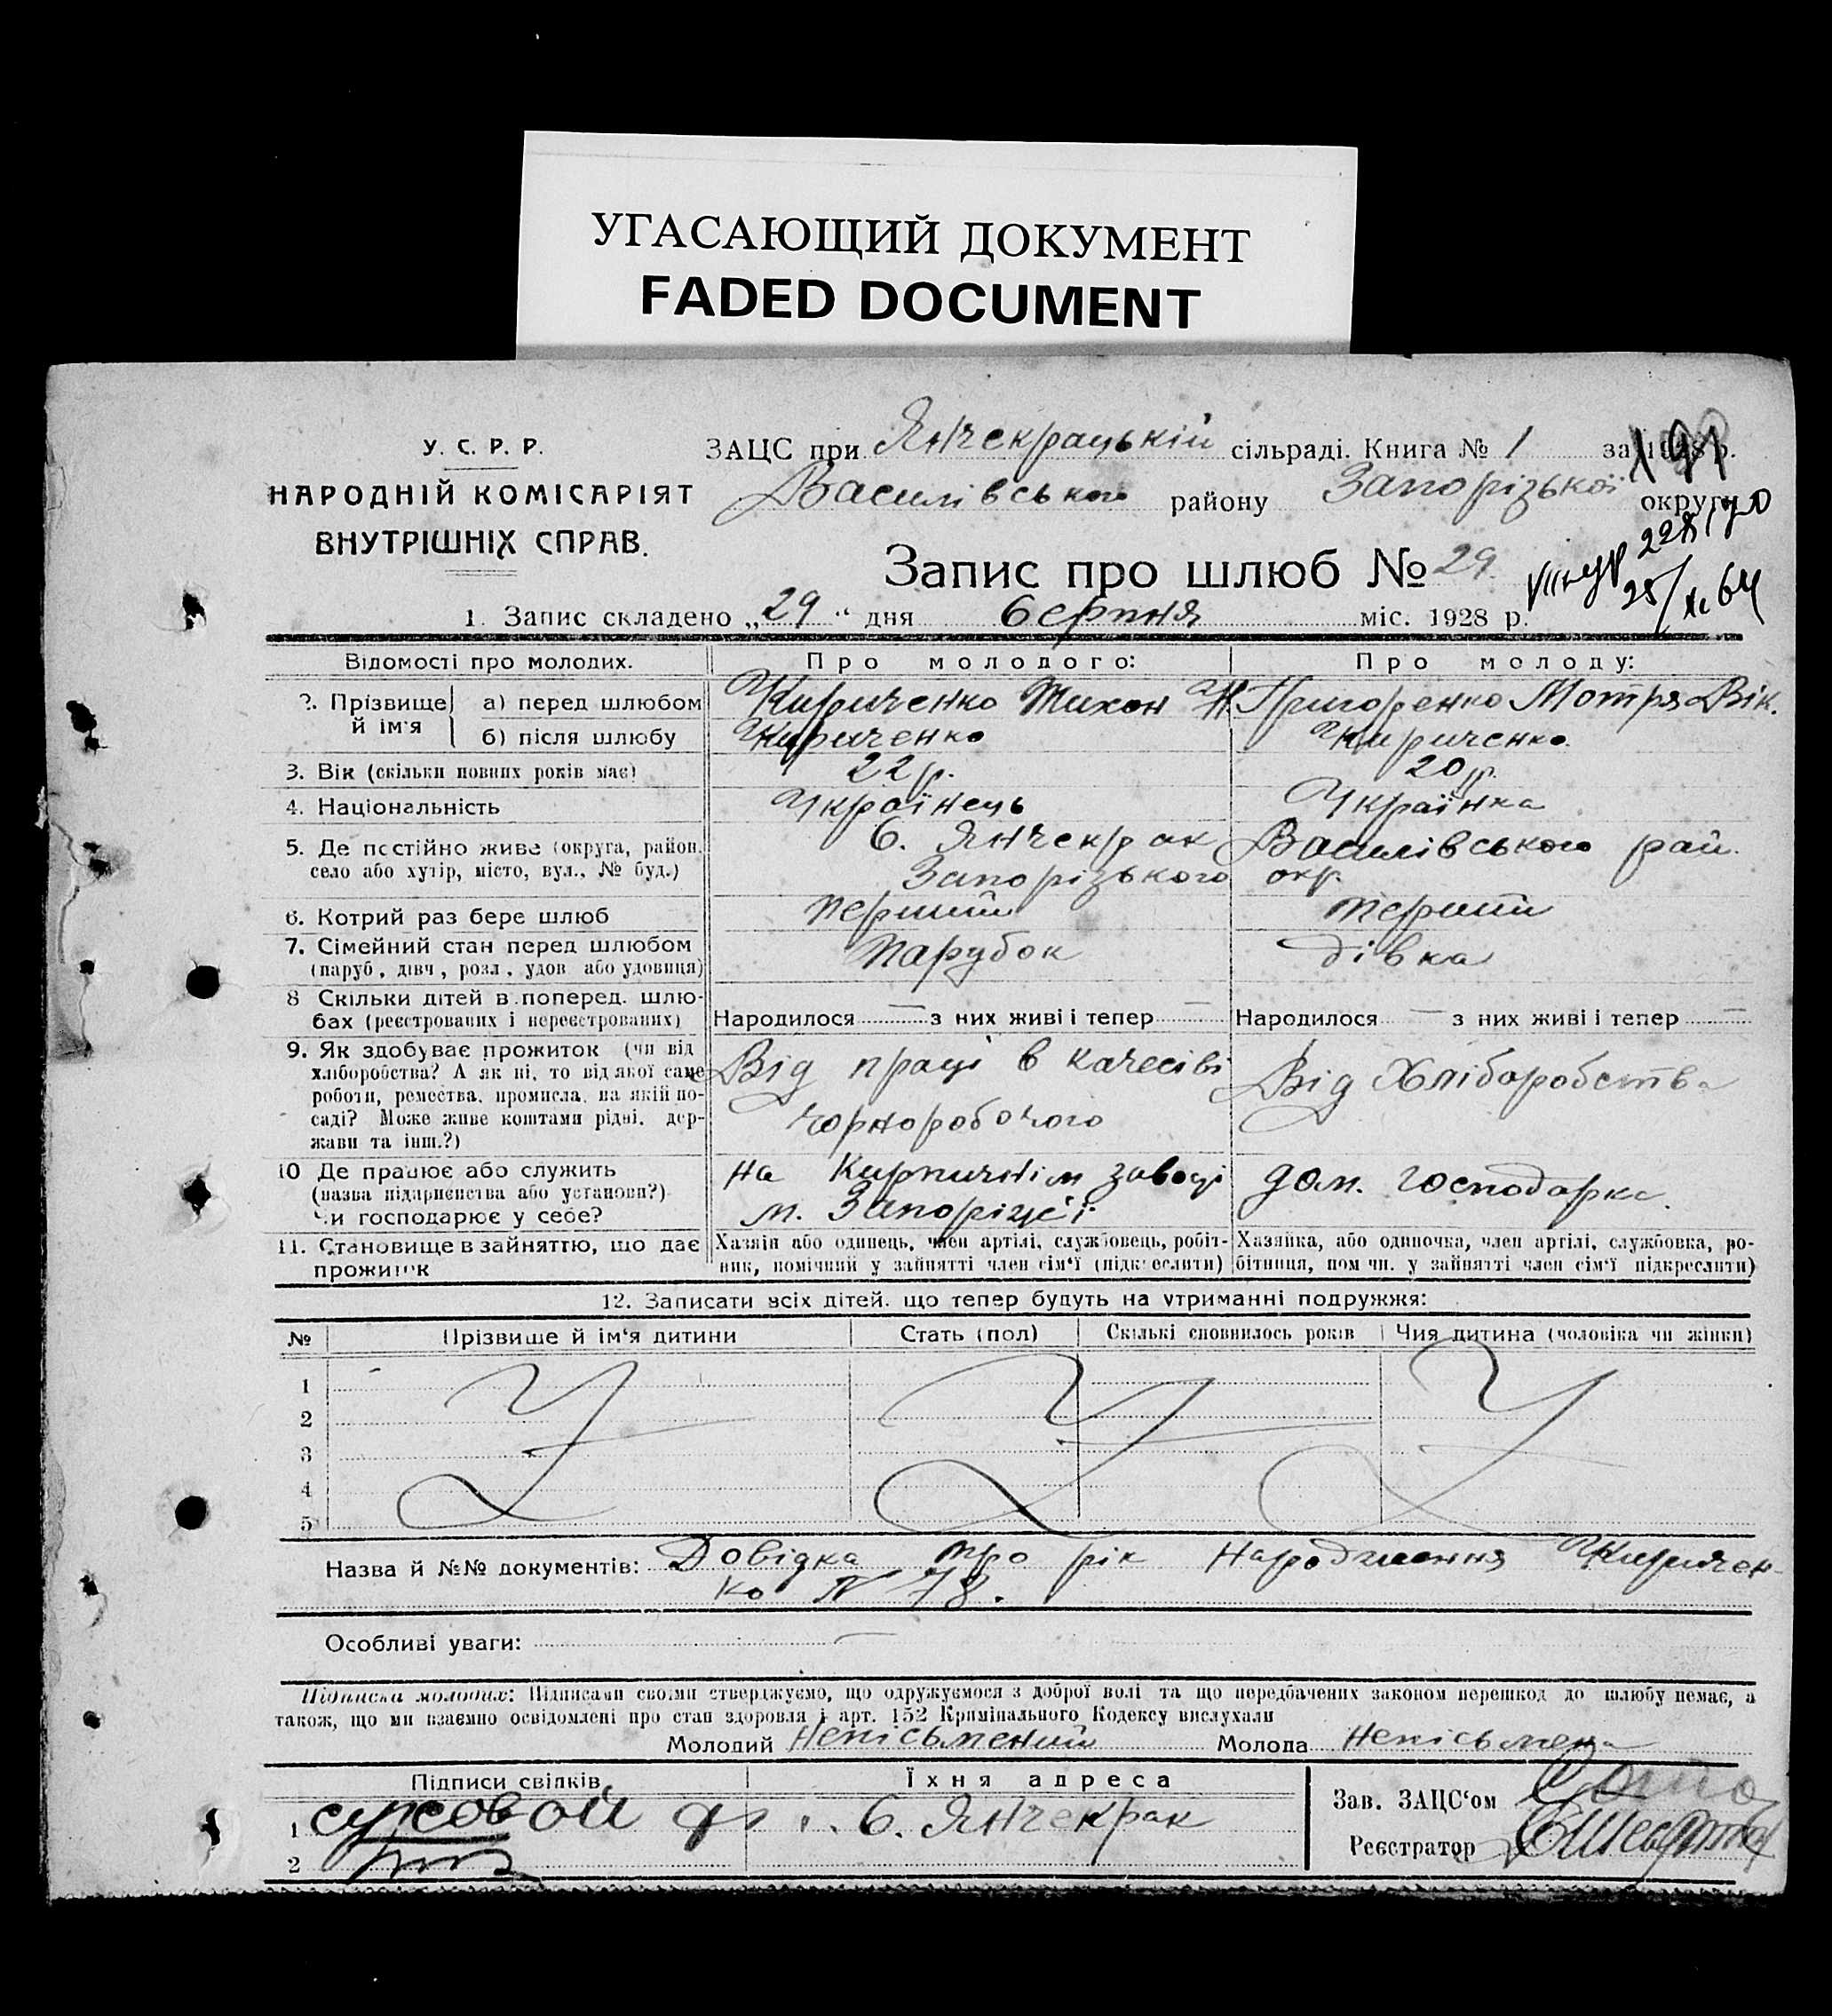 УГАСАЮЩИЙ ДОКУМЕНТ
FADED DOCUMENT
У. С. Р. Р.
НАРОДНІЙ КОМІСАРІЯТ
ВНУТРІШНІХ СПРАВ.
ЗАЦС при Янчекрацькій сільраді. Книга № 1 за 1928 р.
Василівського району Запорізької округи
Запис про шлюб № 29.
1. Запис складено „29“ дня Серпня міс. 1928 р.
Відомості про молодих.
Про молодого:
Про молоду:
2. Прізвище й ім'я
а) перед шлюбом
Кириченко Тихон
Григоренко Мотря Вік.
б) після шлюбу
Кириченко
Кириченко
3. Вік (скільки повних років має)
22 р.
20 р.
4. Національність
Українець
Українка
5. Де постійно живе (округа, район,
село або хутір, місто, вул., № буд.)
С. Янчекрак Василівського рай.
Запорізького окр.
6. Котрий раз бере шлюб
перший
перший
7. Сімейний стан перед шлюбом
(паруб., дівч., розл., удов. або удовиця)
парубок
дівка
8 Скільки дітей в поперед. шлю-
бах (реєстрованих і нереєстрованих)
Народилося — з них живі і тепер —
Народилося — з них живі і тепер —
9. Як здобуває прожиток (чи від
хліборобства? А як ні, то від якої саме
роботи, ремества, промисла, на якій по-
саді? Може живе коштами рідні, дер-
жави та інш.?)
Від праці в качесіві
чорноробочого
Від Хліборобства
10 Де працює або служить
(назва підприємства або установи?)
Чи господарює у себе?
на Кирпичнім заводі
м. Запоріжжі
дом. господарка.
11. Становище в зайняттю, що дає
прожиток
Хазяїн або одинець, член артілі, службовець, робіт-
ник, помічний у зайнятті член сім'ї (підкреслити)
Хазяйка, або одиночка, член артілі, службовка, ро-
бітниця, пом чн. у зайнятті член сім'ї підкреслити)
12. Записати всіх дітей, що тепер будуть на утриманні подружжя:
№ Прізвище й ім'я дитини Стать (пол) Скількі сповнилось років Чия дитина (чоловіка чи жінки)
1
2
3
4
5
Назва й №№ документів: Довідка про рік народження Киричен-
ко № 78.
Особливі уваги: —
Підписка молодих: Підписами своїми стверджуємо, що одружуємося з доброї волі та що передбачених законом перешкод до шлюбу немає, а
також, що ми взаємно освідомлені про стан здоровля і арт. 152 Кримінального Кодексу вислухали
Молодий Непісьмений Молода Непісьмена
Підписи свідків
Їхня адреса
1 сусовой
С. Янчекрак
2
Зав. ЗАЦС'ом
Реєстратор